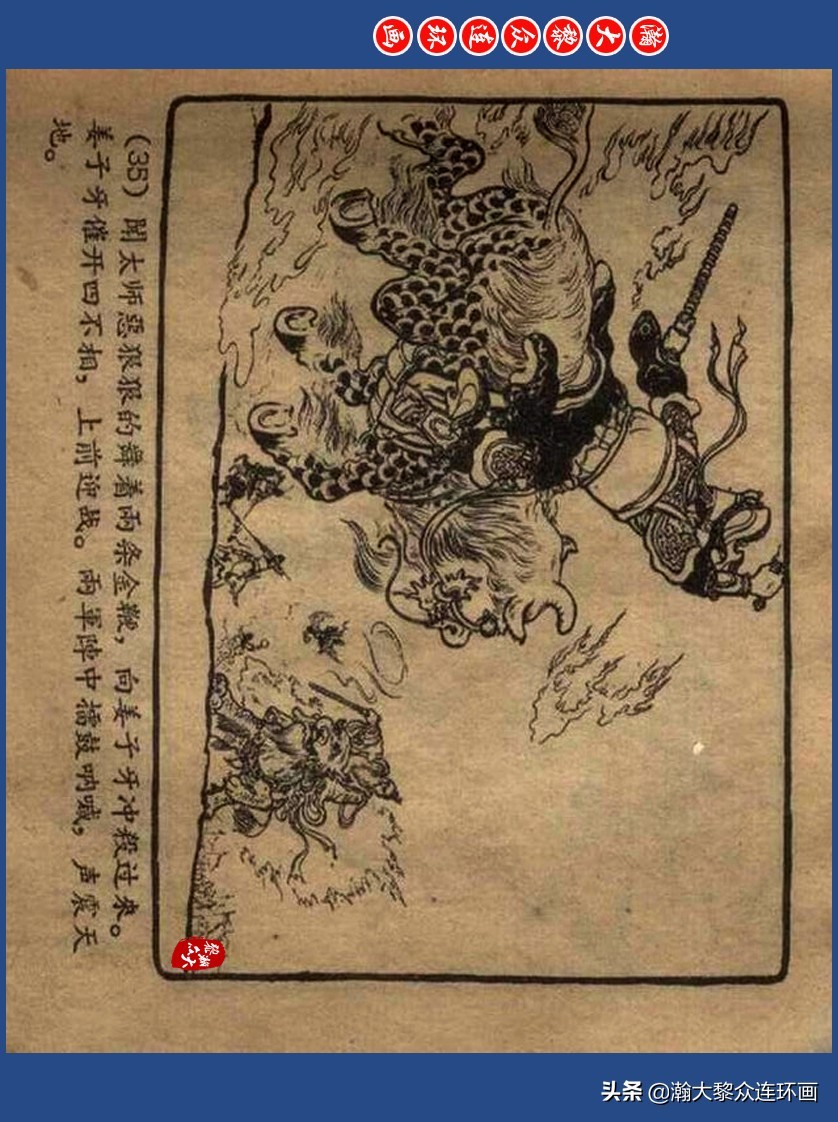 瀚大黎众连环画
(35) 聞太师惡狠狠的舞着兩条金鞭，向姜子牙冲殺过来。
姜子牙催开四不相，上前迎战。兩軍陣中擂鼓呐喊，声震天
地。
瀚大黎众
头条 @瀚大黎众连环画